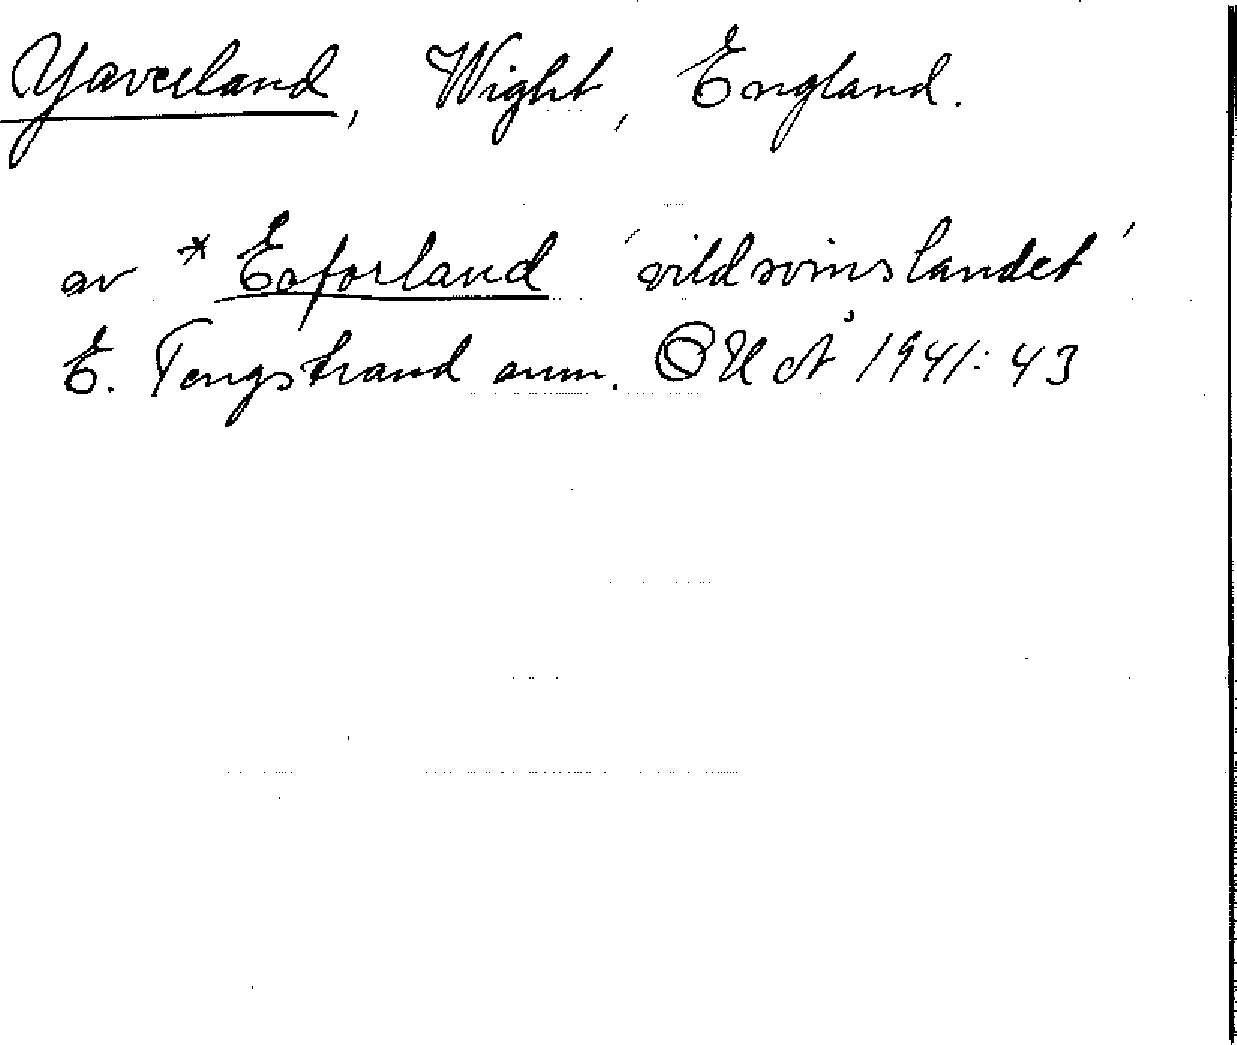 Yaverland, Wight, England.
av *Eoforland 'vildsvinslandet'
E. Tengstrand anm. OUÅ 1941: 43